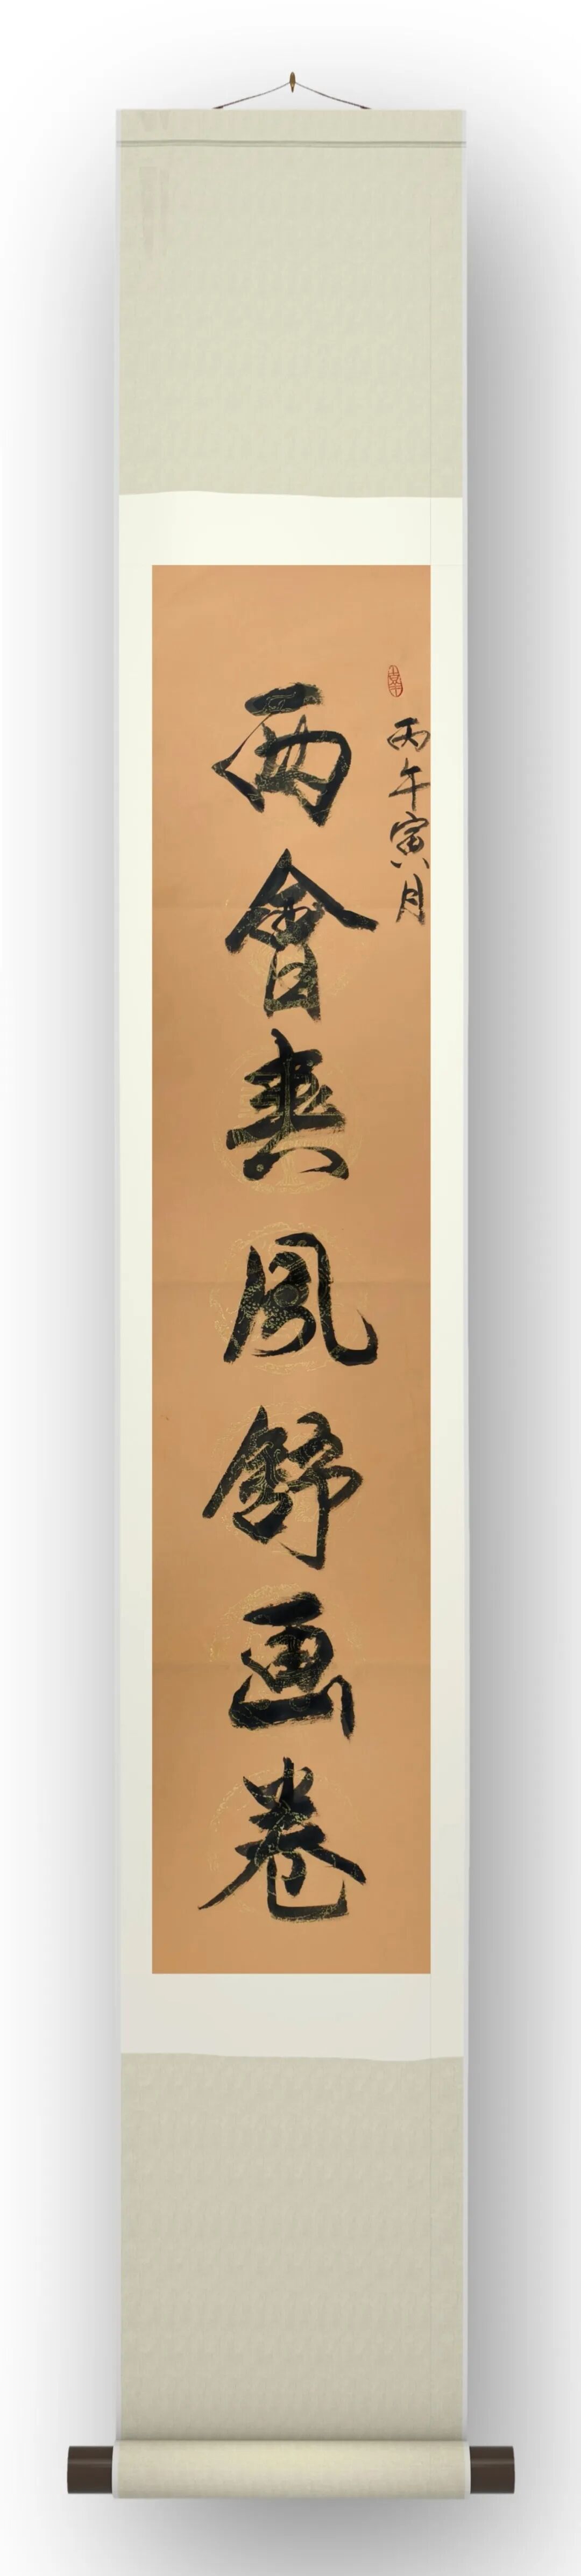 丙午寅月
两會風舒画卷